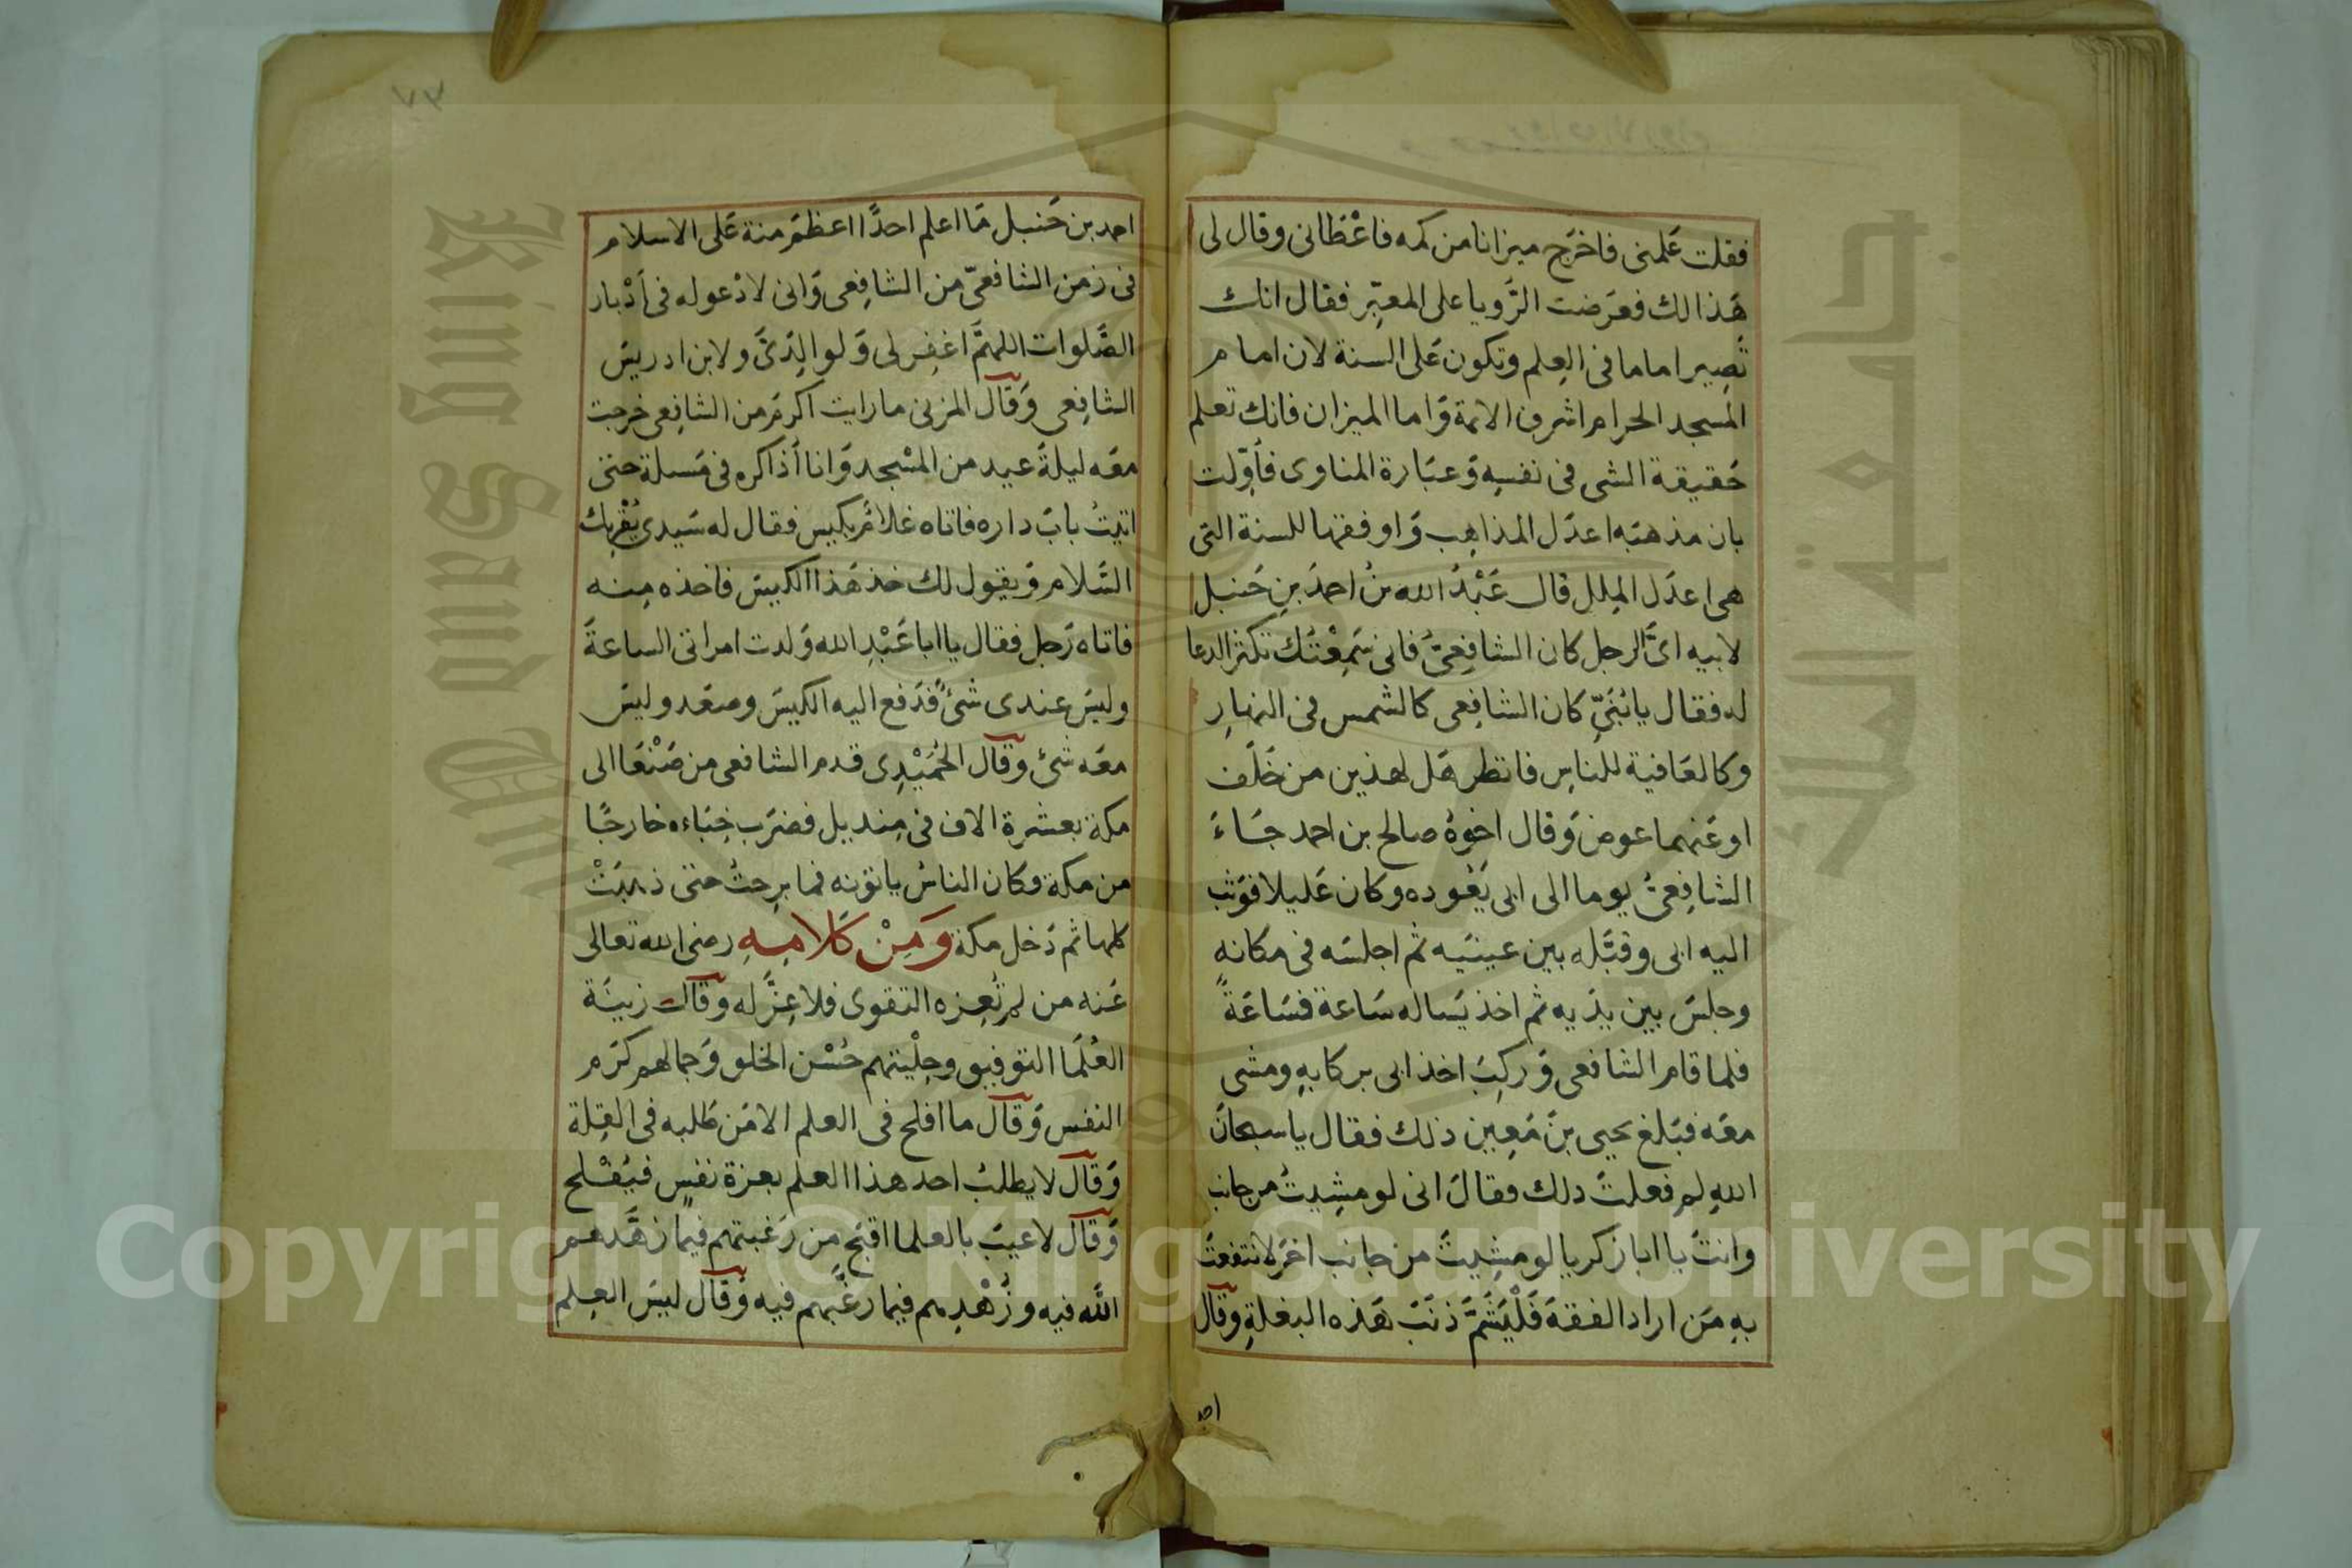 فقلت عَلمنى فاخرَج ميزانا من كمه فاعْطَانى وقال لى
هَذا لك فعرَضت الرَّويا على المعبِّر فقال انك
تَصِير اماما فى العِلم وتكون عَلى السنة لان امام
المسجد الحرام اشرف الائمة وَاما الميزان فانك تعلم
حَقيقة الشى فى نفسِهِ وَعبَارة المناوى فأوّلت
بان مذهبَه اعدَل المذاهِب وَاوفقها للسنة التى
هى اعدَل المِلل قال عَبْدُ الله بنُ احمدَ بنِ حَنبل
لابيه اىَّ الرجل كان الشافِعىُّ فانى سَمِعْتُك تكثر الدعا
له فقال يا بُنَىِّ كان الشافِعى كالشمس فى النهارِ
وكالعَافية للناسِ فانظر هَل لهذين من خَلَف
او عَنهما عوض وَقال اخوهُ صالح بن احمد جَاءَ
الشافِعىُّ يوما الى ابى يَعُوده وكان عَليلا فوَثب
اليه ابى وقبَّله بين عينَيه ثم اجلسَه فى مكانهِ
وجلسَ بين يدَيه ثم اخذ يَساله سَاعة فسَاعَةً
فلما قام الشافعى وَركِبَ اخذ ابى بركابهِ ومشى
معَه فبَلغ يحيى بنَ مَعِين ذلك فقال يا سبحانَ
اللهِ لم فعلتَ ذلك فقالَ انى لو مشِيتُ من جانب
وانتَ يا ابا زكريا لو مشِيتَ من جانب اخرَ لانتفعتَ
بهِ مَن اراد الفقهَ فَلْيَشَمَّ ذنَبَ هَذه البغلةِ وقال
احمد
٧٣
احمد بن حَنبل مَا اعلم احدًا اعظمَ منة عَلى الاسلام
فى زمن الشافعىّ من الشافِعى وَانى لادْعو له فى أدْبار
الصَّلوات اللهمَّ اغفِر لى وَلوالِدَىَّ ولابن ادريسَ
الشافِعى وَقال المزنى ما رايت اكرمَ من الشافِعى خرجت
معَه ليلةَ عيد من المسْجد وَانا أذاكره فى مَسلة حتى
اتيتُ بابَ داره فاتاه غلامٌ بكيس فقال له سَيدى يُقْرِئك
السَّلام وَيقول لك خذ هَذا الكيسَ فاخذه مِنه
فاتاه رَجل فقال يا ابا عَبْدِ الله وَلدت امراتى الساعةَ
وليسَ عندى شئٌ فدَفع اليه الكيسَ وصعَد وليسَ
معَه شئ وقال الحُمَيْدِى قدم الشافعى من صَنْعَا الى
مكة بعشرة الاف فى مِنديل فضرَب خِبَاءه خارجًا
من مكة وكان الناسُ ياتونه فما برِحتُ حتى ذهبَتْ
كلها ثم دَخل مكة وَمِنْ كَلامِهِ رضى الله تعالى
عَنه من لم تُعِزه التقوى فلا عِزَّ له وقال زينَة
العُلَما التوفيق وحِلْيتهم حُسْن الخلق وَجمالهم كرَم
النفس وَقال ما افلح فى العلم الا مَن طَلبه فى القِلة
وَقال لا يطلبُ احد هذا العلم بعزة نفسٍ فيُفْلح
وَقال لا عيبَ بالعلما اقبَح مِن رَغبتهم فيما زهَّدهم
الله فيه وزُهْدِهم فيما رغَّبهم فيه وَقال ليسَ العِلم
Copyright © King Saud University